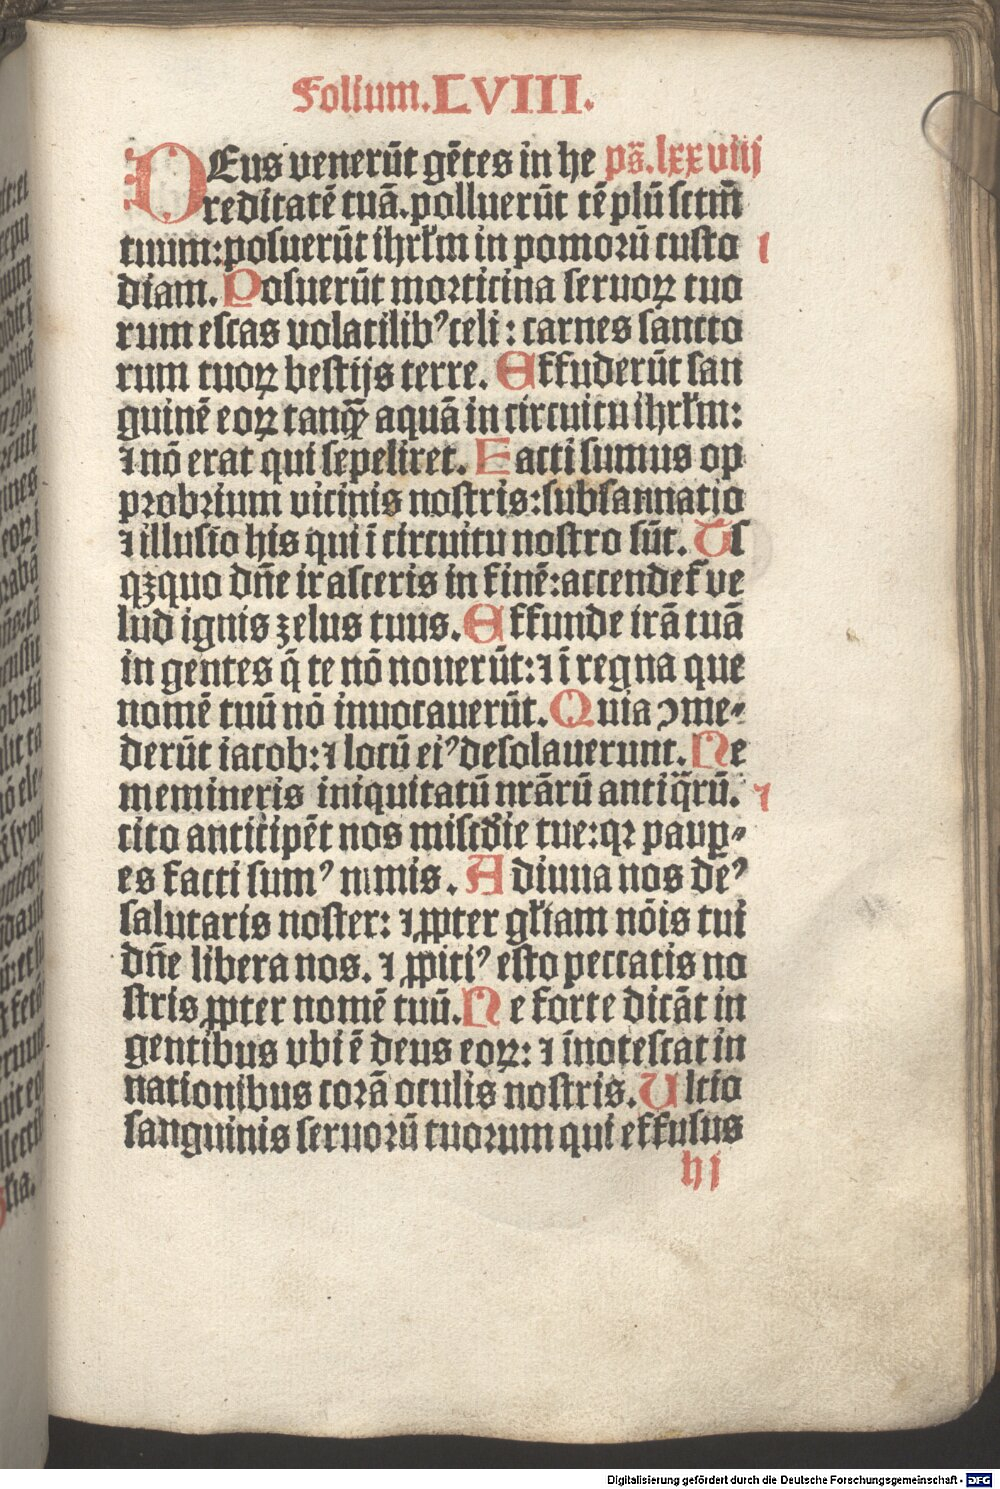 Folium.LVIII.
DEus venerūt gētes in he ps̄.lxxviij
reditatē tuā.polluerūt tēplū sctm̄
tuum:posuerūt ihrłm in pomorū custo
diam.Posuerūt morticina seruoꝝ tuo
rum escas volatilibꝰ celi: carnes sancto
rum tuoꝝ bestijs terre. Effuderūt san
guinē eoꝝ tanqȝ̄ aquā in circuitu ihrłm:
⁊ nō erat qui sepeliret. Facti sumus op
probrium vicinis nostris:subsannatio
⁊ illusio his qui ī circuitu nostro sūt. Us
qȝquo dn̄e irasceris in finē:accendet̄ ve
lud ignis zelus tuus.Effunde irā tuā
in gentes q̄ te nō nouerūt:⁊ ī regna que
nomē tuū nō inuocauerūt.Quia ꝯme-
derūt iacob:⁊ locū eiꝰ desolauerunt.Ne
memineris iniquitatū nrārū antiq̄rū.
cito anticipēt nos misc̄die tue:qꝛ pauꝑ-
es facti sumꝰ nimis. Adiuua nos deꝰ
salutaris noster: ⁊ ꝓpter głiam nōis tui
dn̄e libera nos. ⁊ ꝓpitiꝰ esto peccatis no
stris ꝓpter nomē tuū.Ne forte dicāt in
gentibus vbi ē deus eoꝝ: ⁊ īnotescat in
nationibus corā oculis nostris.Ultio
sanguinis seruorū tuorum qui effusus
hj
Digitalisierung gefördert durch die Deutsche Forschungsgemeinschaft - DFG